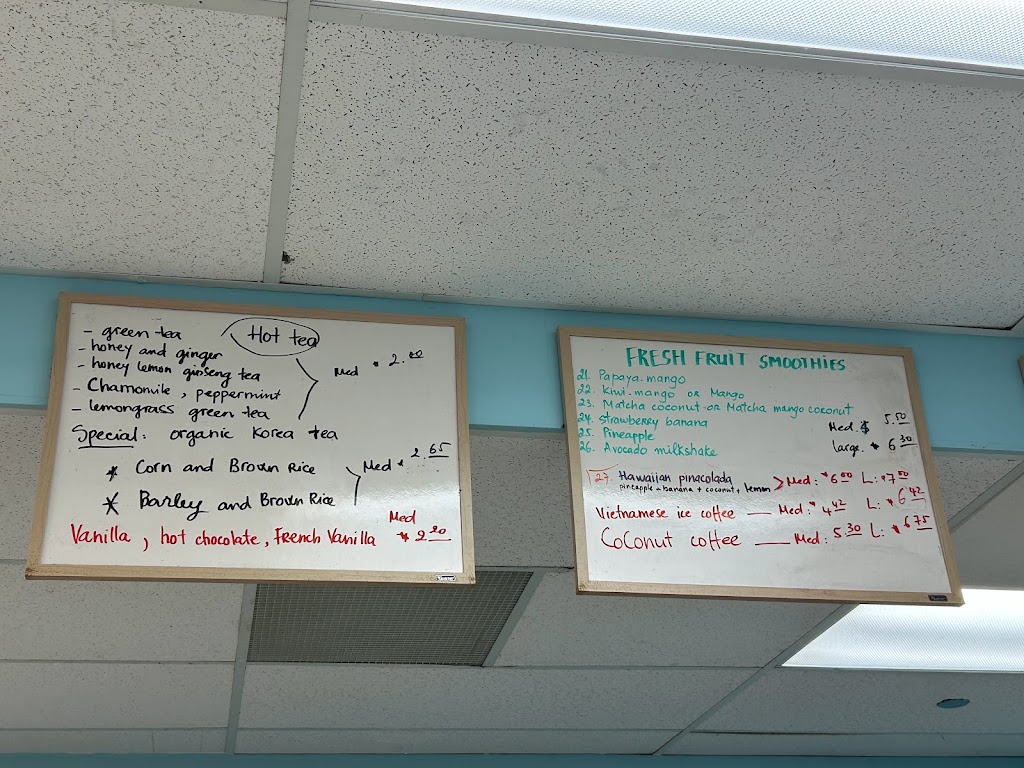 Hot tea
- green tea
- honey and ginger
- honey lemon ginseng tea
- Chamomile, peppermint
- lemongrass green tea
Med $ 2.00
Special: organic Korea tea
* Corn and Brown Rice
* Barley and Brown Rice
Med $ 2.65
Vanilla, hot chocolate, French Vanilla Med $ 2.20
FRESH FRUIT SMOOTHIES
21. Papaya-mango
22. Kiwi-mango or Mango
23. Matcha coconut or Matcha mango coconut
24. strawberry banana
25. Pineapple
26. Avocado milkshake
Med. $ 5.50
large. $ 6.30
27. Hawaiian pinacolada Med: $6.00 L: $7.50
pineapple + banana + coconut + lemon
Vietnamese ice coffee — Med: $4.42 L: $6.42
Coconut coffee — Med: 5.30 L: $6.75